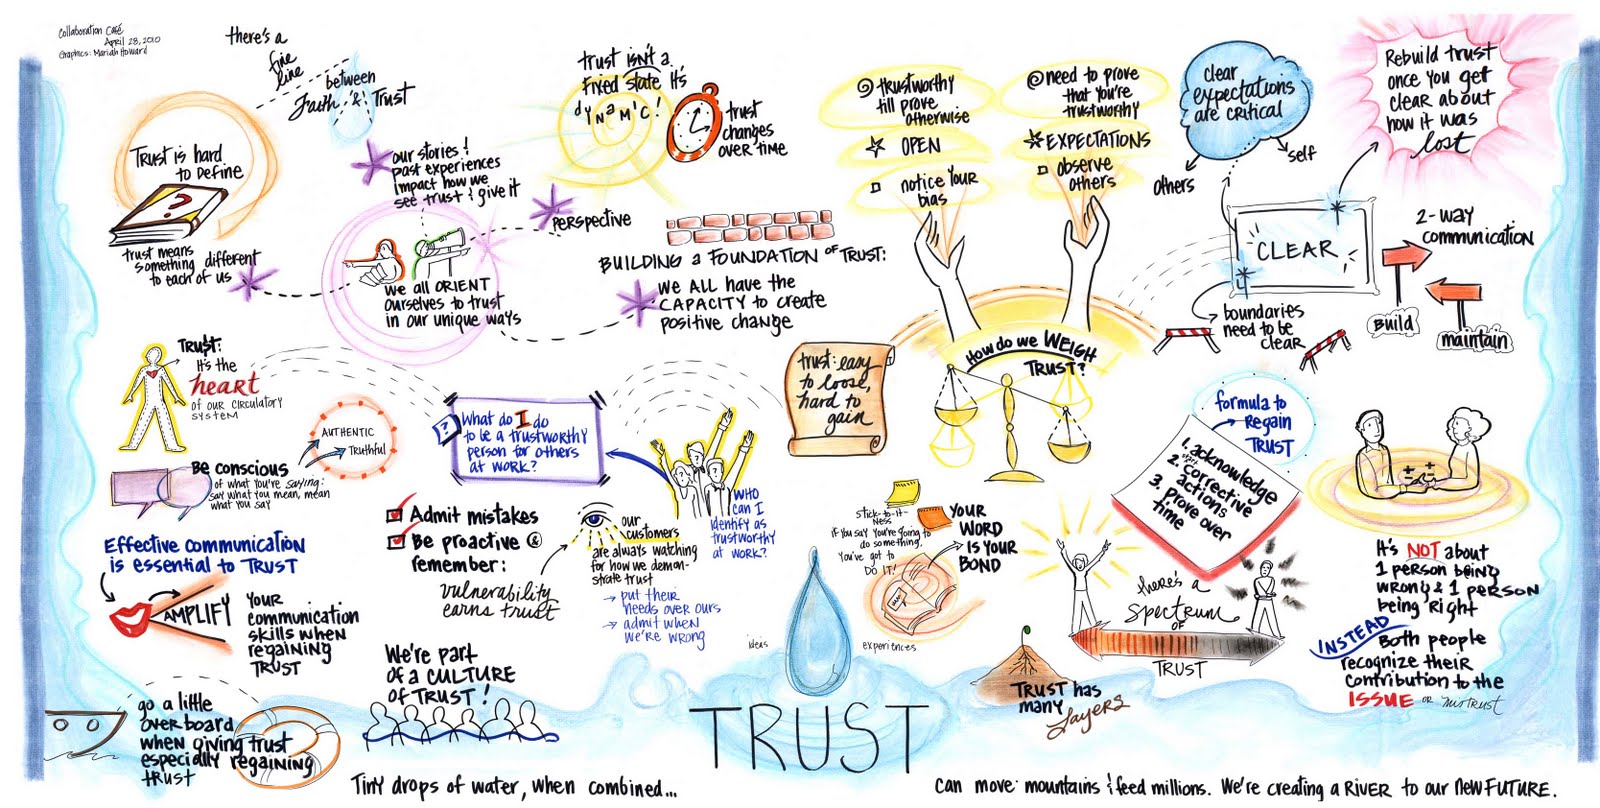 Collaboration Café
April 28, 2010
Graphics: Mariah Howard
there's a
fine
line
between
Faith & Trust
Trust is hard
to Define
?
trust means
something different
to each of us
our stories &
past experiences
impact how we
see trust & give it
perspective
we all ORIENT
ourselves to trust
in our unique ways
trust isn't a
fixed state it's
dynamic!
trust
changes
over time
BUILDING a FOUNDATION of TRUST:
we ALL have the
CAPACITY to create
positive change
trustworthy
till prove
otherwise
need to prove
that you're
trustworthy
OPEN
EXPECTATIONS
notice your
bias
observe
others
How do we WEIGH
TRUST?
trust: easy
to loose,
hard to
gain
clear
expectations
are critical
others
self
Rebuild trust
once you get
clear about
how it was
lost
CLEAR
2-way
communication
Build
maintain
boundaries
need to be
clear
Trust:
It's the
heart
of our circulatory
system
AUTHENTIC
Truthful
Be conscious
of what you're saying:
say what you mean, mean
what you say
Effective communication
is essential to TRUST
AMPLIFY
your
communication
skills when
regaining
TRUST
? What do I do
to be a trustworthy
person for others
at work?
Admit mistakes
Be proactive &
remember:
vulnerability
earns trust
our
customers
are always watching
for how we demon-
strate trust
→ put their
needs over ours
→ admit when
we're wrong
WHO
can I
identify as
trustworthy
at work?
stick-to-it-
ness
if you say you're going to
do something,
you've got to
DO IT!
YOUR
WORD
is YOUR
BOND
formula to
Regain
TRUST
1. acknowledge
2. start corrective
actions
3. prove over
time
there's a
spectrum
of
TRUST
It's NOT about
1 person being
wrong & 1 person
being right
INSTEAD
Both people
recognize their
contribution to the
ISSUE or mistrust
go a little
overboard
when giving trust
especially regaining
trust
We're part
of a CULTURE
of TRUST!
ideas
experiences
TRUST
TRUST has
many
Layers
Tiny drops of water, when combined...
can move mountains & feed millions. We're creating a RIVER to our new FUTURE.